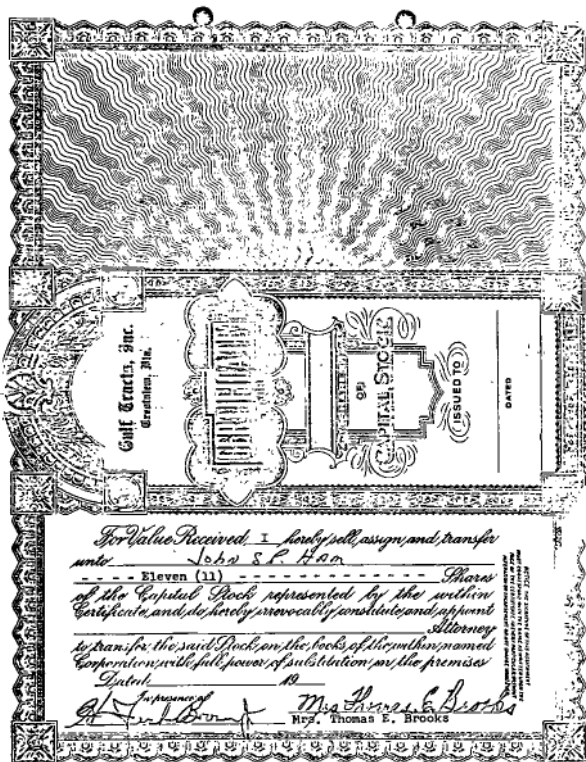 Gulf Tracts, Inc.
Crestview, Fla.
CERTIFICATE
OF
CAPITAL STOCK
ISSUED TO
DATED
For Value Received, I hereby sell, assign and transfer
unto John S P. Ham
- - - - Eleven (11) - - - - - - - - - - - - Shares
of the Capital Stock represented by the within
Certificate, and do hereby irrevocably constitute and appoint
Attorney
to transfer the said Stock on the books of the within named
Corporation with full power of substitution in the premises
Dated 19
In presence of
Mrs Thomas E. Brooks
Mrs. Thomas E. Brooks